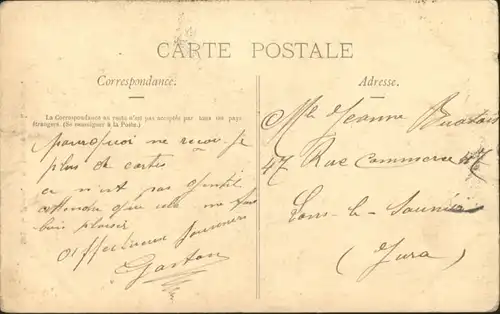 CARTE POSTALE
Correspondance.
Adresse.
La Correspondance au recto n'est pas acceptée par tous les pays
étrangers. (Se renseigner à la Poste.)
pourquoi ne reçoi-je
plus de cartes
ce n'est pas gentil
attendu que cela me fais
bien plaisir
Affectueux Souvenirs
Gaston
Mlle Jeanne
47 Rue Commerce 47
Lons-le-Saunier
(Jura)